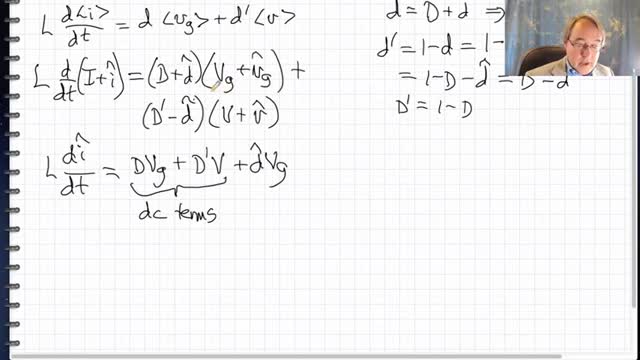 L d<i>/dt = d <vg> + d' <v>
L d/dt (I + î) = (D + d̂)(Vg + v̂g) +
(D' - d̂)(V + v̂)
L dî/dt = DVg + D'V + d̂Vg
dc terms
d = D + d ⇒
d' = 1 - d = 1 -
= 1 - D - d̂ = D - d
D' = 1 - D